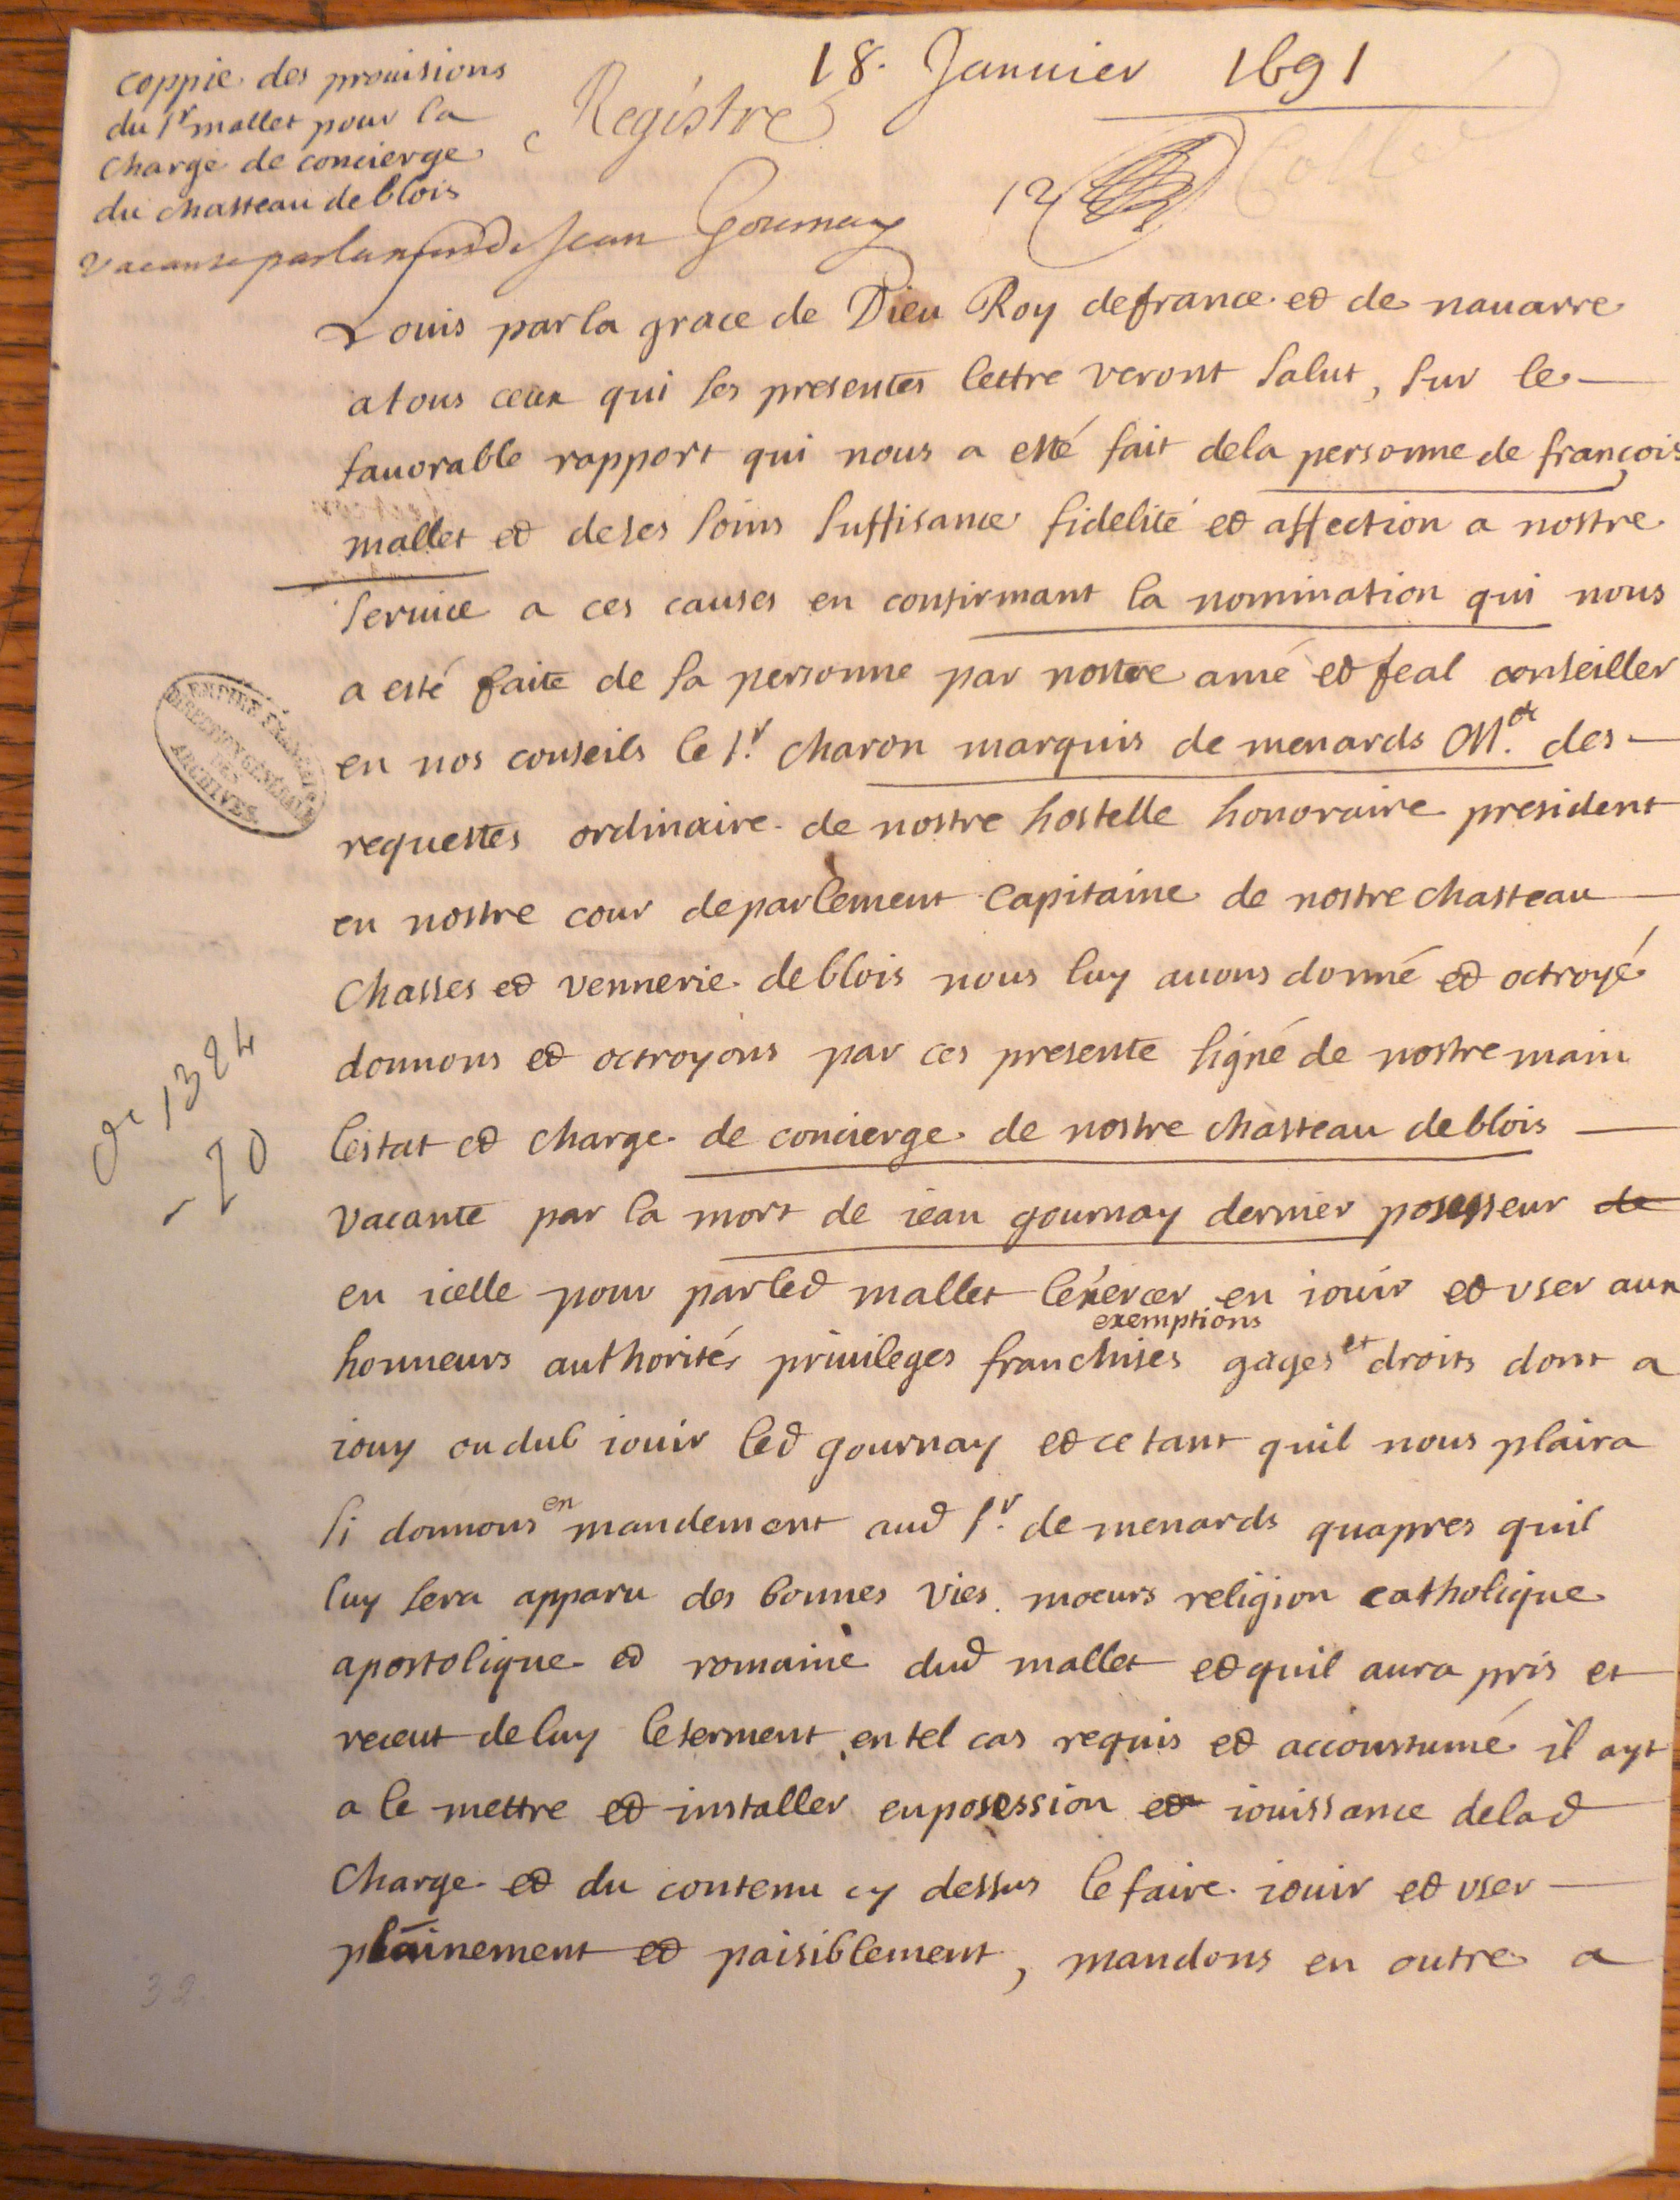 18. Januier 1691
coppie des prouisions
du Sr mallet pour la
charge de concierge
du chasteau de blois
vacante par la mort de Jean Gournay
Registré
12
Collé
Louis par la grace de Dieu Roy de france et de nauarre
a tous ceux qui ses presentes lettre veront salut, sur le
fauorable rapport qui nous a esté fait de la personne de françois
mallet et de ses soins suffisance fidelité et affection a nostre
seruice a ces causes en confirmant la nomination qui nous
a esté faite de sa personne par nostre amé et feal conseiller
en nos conseils le Sr. charon marquis de menards Me. des
requestes ordinaire de nostre hostelle honoraire president
en nostre cour de parlement Capitaine de nostre chasteau
Chasses et vennerie de blois nous luy auons donné et octroyé
donnons et octroyons par ces presente signé de nostre main
lestat et charge de concierge de nostre chasteau de blois
vacante par la mort de iean gournay dernier posesseur de
en icelle pour par led mallet lexercer en iouir et vser aux
exemptions
honneurs authorités priuileges franchises gages et droits dont a
iouy ou dub iouir led gournay et ce tant quil nous plaira
si donnons en mandement aud Sr. de menards quapres quil
luy sera apparu des bonnes vies moeurs religion catholique
apostolique et romaine dud mallet et quil aura pris et
receut de luy le serment en tel cas requis et accoustumé il ayt
a le mettre et installer en posession et iouissance de lad
Charge et du contenu cy dessus le faire iouir et vser
plainement et paisiblement, mandons en outre a
EMPIRE FRANÇAIS
DIRECTION GÉNÉRALE
DES
ARCHIVES
O1 1324
20
32